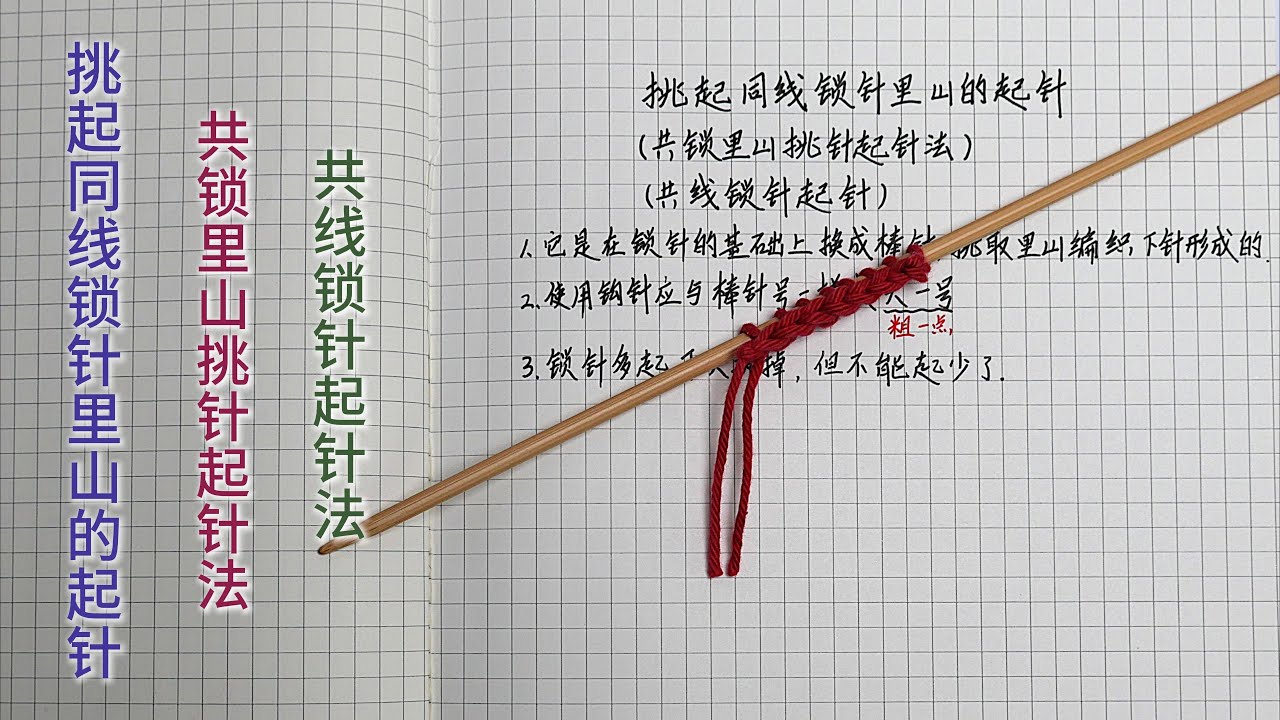 挑起同线锁针里山的起针
共锁里山挑针起针法
共线锁针起针法
挑起同线锁针里山的起针
(共锁里山挑针起针法)
(共线锁针起针)
1.它是在锁针的基础上换成棒针,挑取里山编织下针形成的.
2.使用钩针应与棒针号一 大一号
粗一点,
3.锁针多起 掉,但不能起少了.